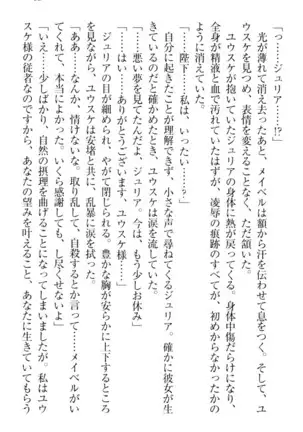 「っ……ジュリア……!?」
光が薄れて消え去ったあと、メイベルは額から汗を伝わせて息をつく。そして、ユ
ウスケを見つめ、表情を変えることなく、ただ頷いた。
ユウスケが抱いていたジュリアの身体に熱が戻ってくる。身体中傷だらけになり、
全身が精液と血で汚れていたはずが、凌辱の痕跡のすべてが、初めからなかったかの
ように消えていた。
「……陛下……私は、いったい……」
自分に起きたことが理解できず、小さな声で尋ねてくるジュリア。確かに彼女が生
きているのだと確かめたとき、ユウスケは涙を流していた。
「……悪い夢を見てたんだよ、ジュリア。今は、もう少しお休み」
「……はい……ありがとうございます、ユウスケ様……」
ジュリアの目が細められ、やがて閉じられる。豊かな胸が安らかに上下するところ
を見ながら、ユウスケは安堵と共に、乱暴に涙を拭った。
「ああ……なんか、情けないな、取り乱して、自殺するとか言って……メイベルが来
てくれて、本当によかった。いくら感謝しても、し尽くせないよ」
「……いえ……少しばかり、自然の摂理を曲げることになってしまいましたが。私はユウ
スケ様の従者なのですから、あなたの望みを叶えること、あなたに生きていてもらう